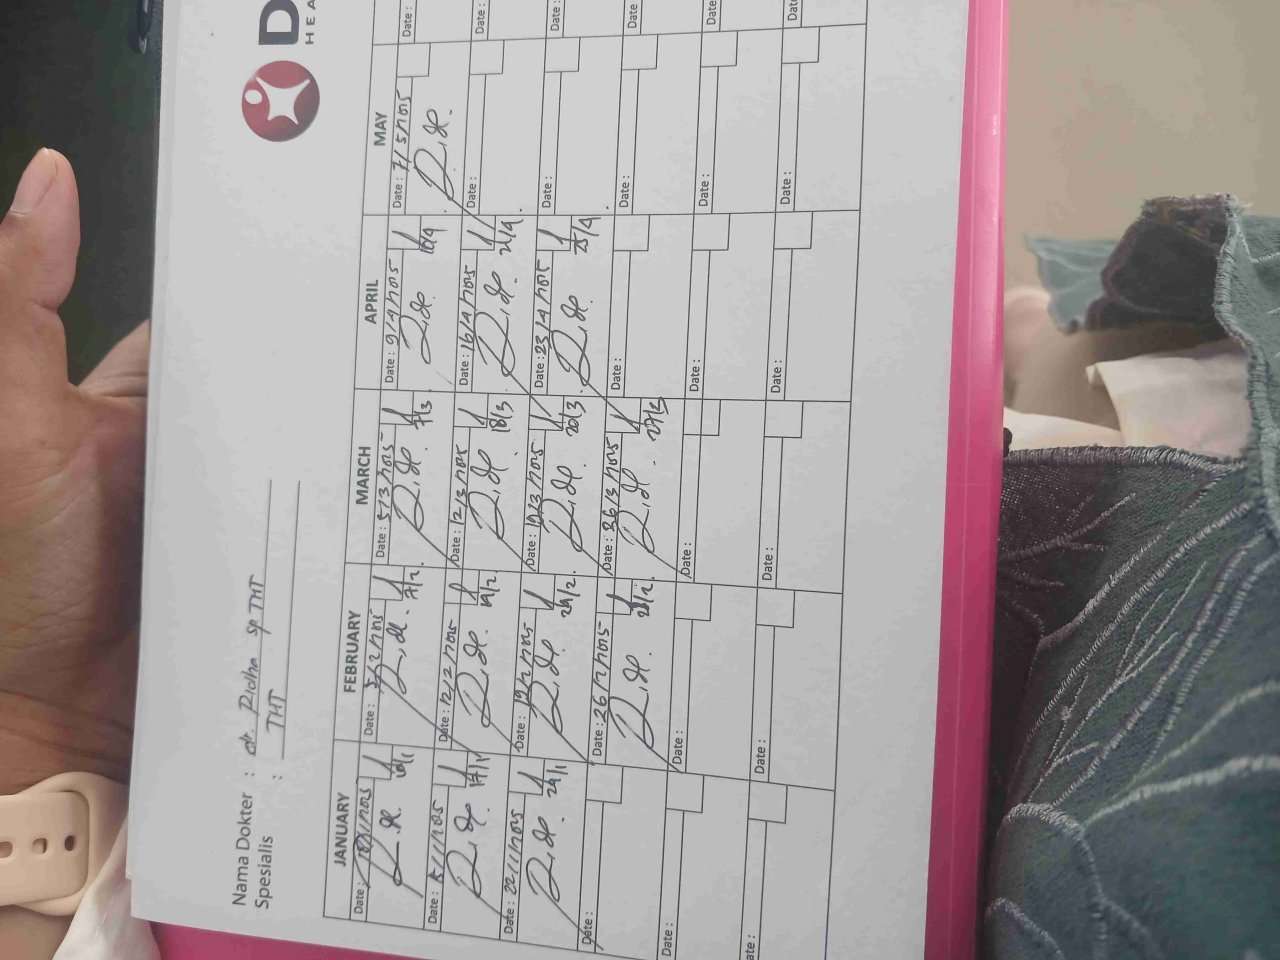 D
HEA
Nama Dokter : dr. Ridha sp THT
Spesialis : THT
JANUARY FEBRUARY MARCH APRIL MAY
Date: Date: 5/2/2025 Date: 5/3/2025 Date: 9/4/2025 Date: 7/5/2025 Date:
10/1 7/2 7/3 10/4
Date: Date: 12/2/2025 Date: 12/3/2025 Date: 16/4/2025 Date: Date:
17/1 14/2 18/3 21/4
Date: 22/1/2025 Date: 19/2/2025 Date: 19/3/2025 Date: 23/4/2025 Date: Date:
24/1 24/2 20/3 25/4
Date: Date: 26/2/2025 Date: 26/3/2025 Date: Date: Date:
28/2 27/3
Date: Date: Date: Date: Date:
Date: Date: Date: Date: Date:
ate: